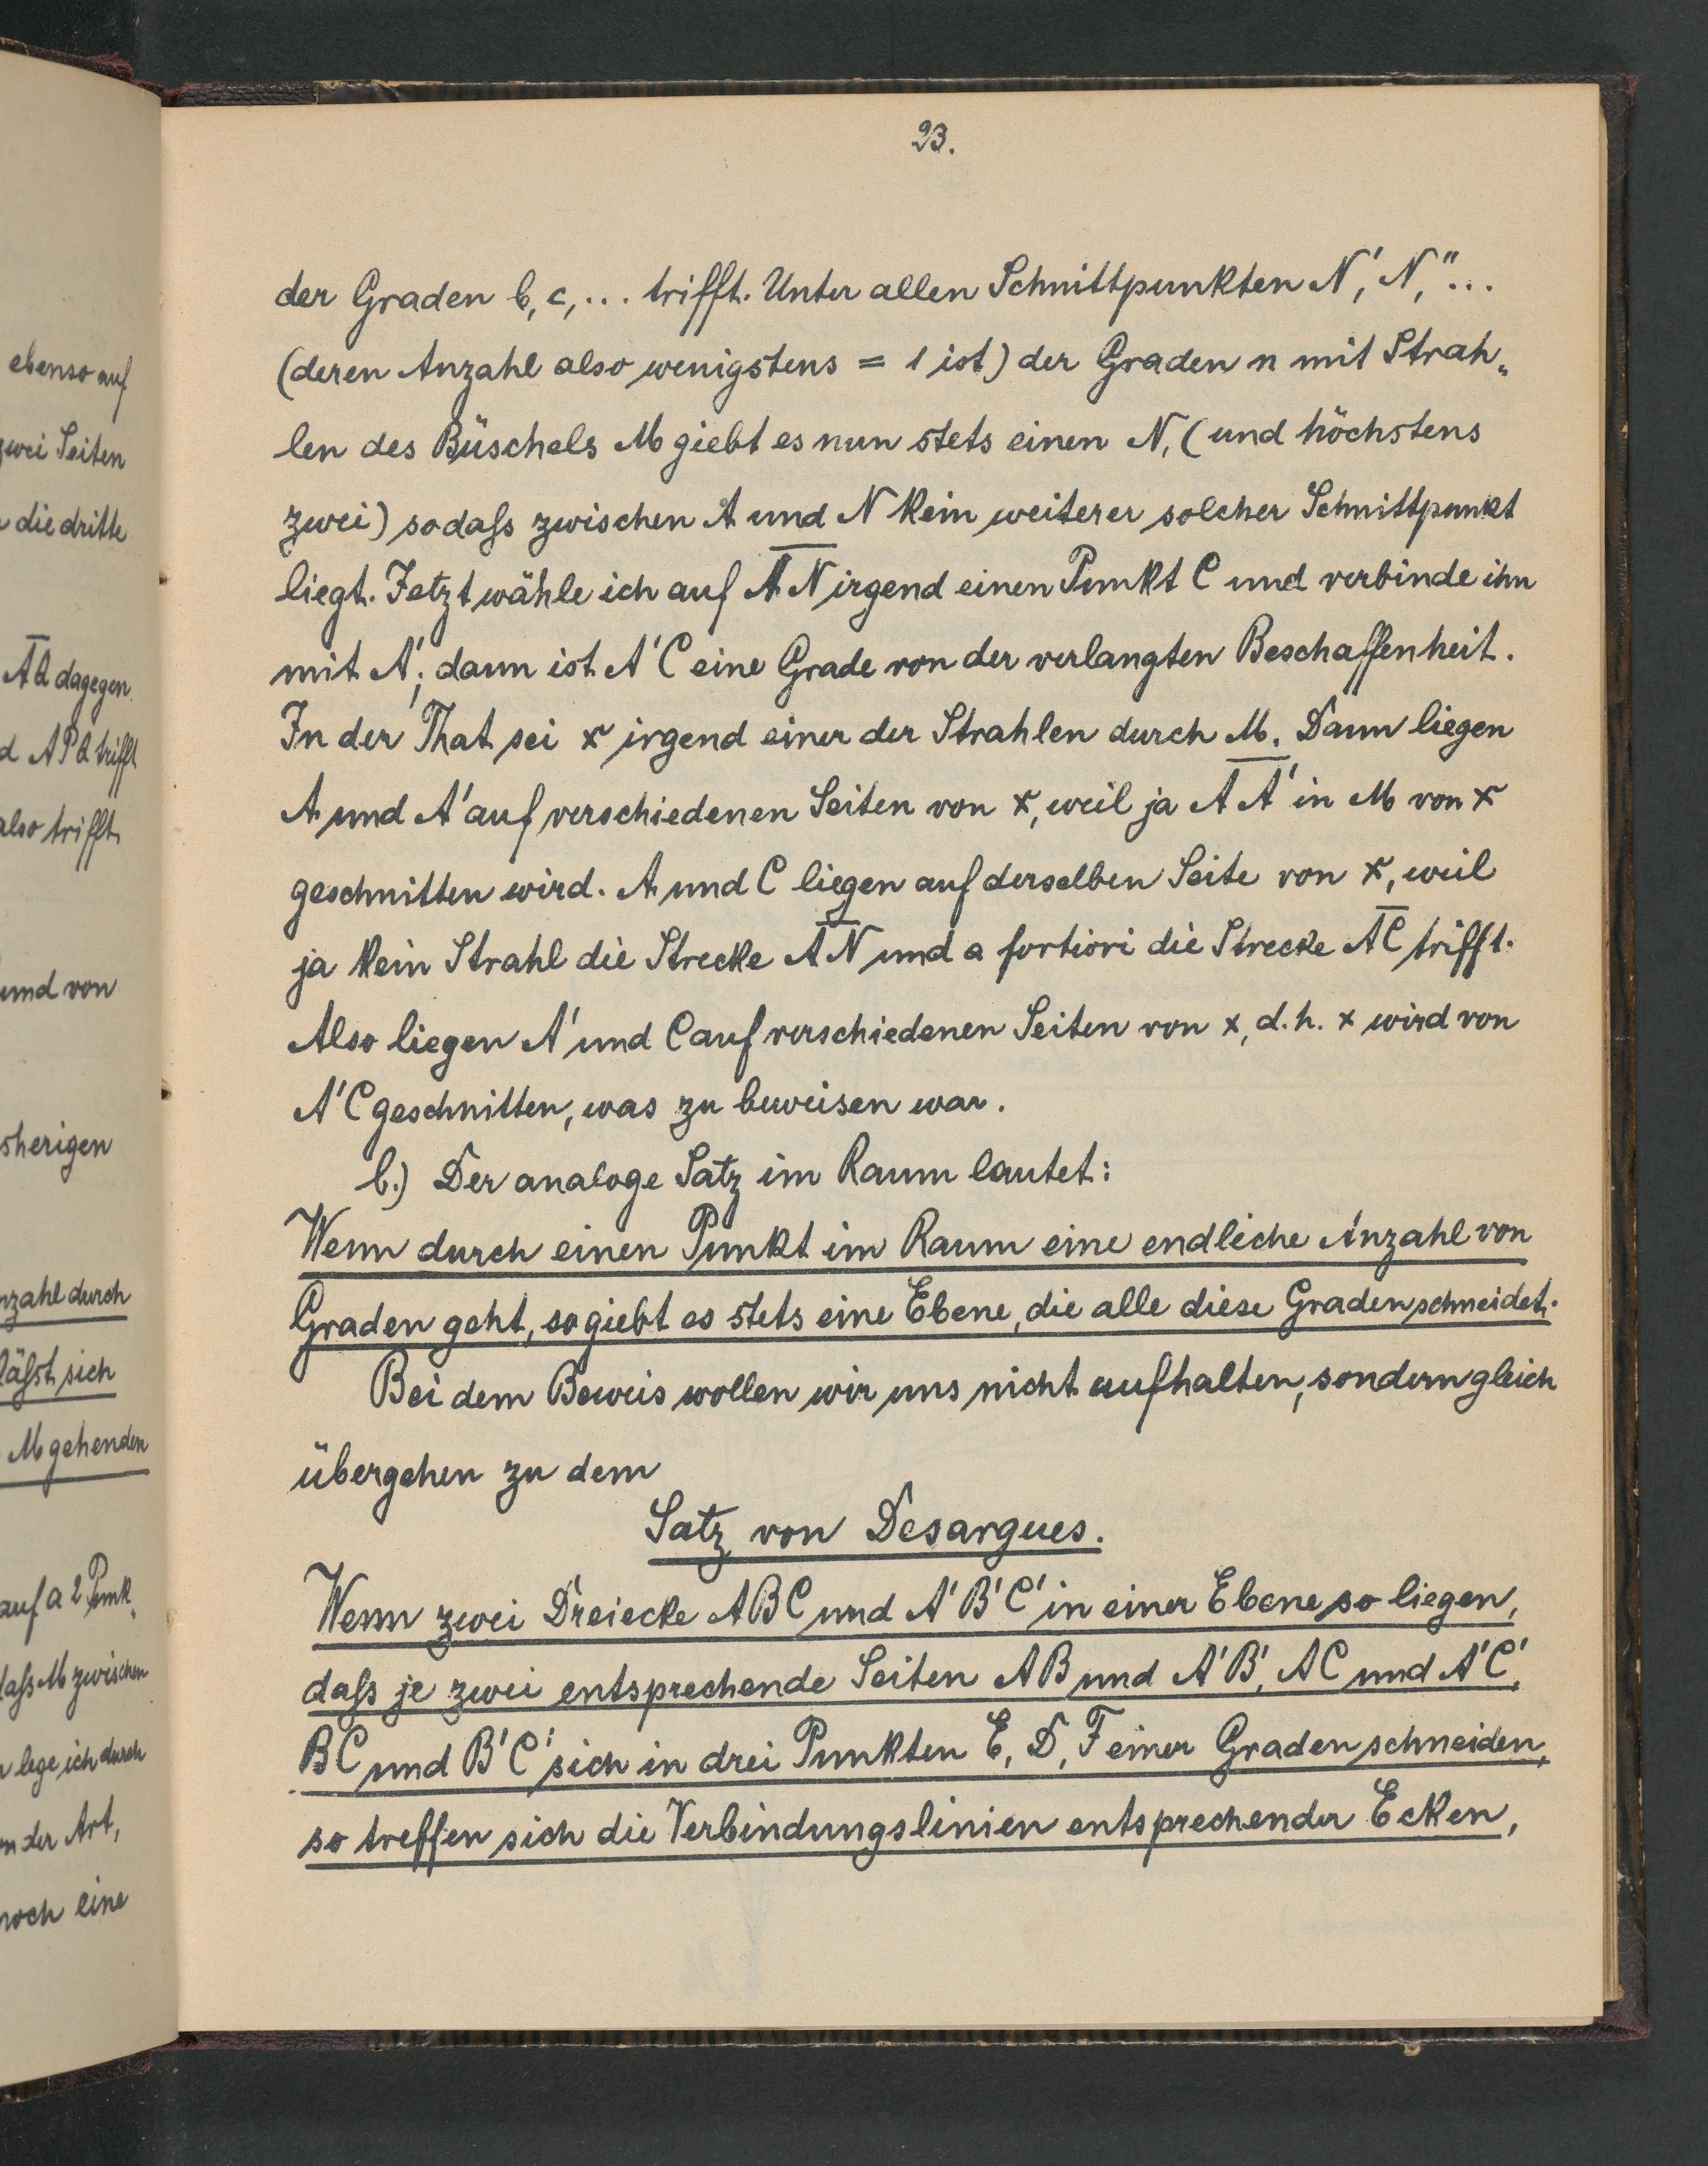 ebenso auf
zwei Seiten
die dritte
A̅Q̅ dagegen
APQ trifft
also trifft.
und von
sherigen
nzahl durch
läßt sich
M gehenden
auf a 2 Punk„
daß M zwischen
lege ich durch
n der Art,
noch eine
23.
der Graden b, c, ... trifft. Unter allen Schnittpunkten N', N'', ...
(deren Anzahl also wenigstens = 1 ist) der Graden n mit Strah„
len des Büschels M giebt es nun stets einen N, (und höchstens
zwei) sodaß zwischen A und N kein weiterer solcher Schnittpunkt
liegt. Jetzt wähle ich auf A̅N̅ irgend einen Punkt C und verbinde ihn
mit A'; dann ist A'C eine Grade von der verlangten Beschaffenheit.
In der That sei x irgend einer der Strahlen durch M. Dann liegen
A und A' auf verschiedenen Seiten von x, weil ja A̅A̅' in M von x
geschnitten wird. A und C liegen auf derselben Seite von x, weil
ja kein Strahl die Strecke A̅N̅ und a fortiori die Strecke A̅C̅ trifft.
Also liegen A' und C auf verschiedenen Seiten von x, d.h. x wird von
A'C geschnitten, was zu beweisen war.
b.) Der analoge Satz im Raum lautet:
Wenn durch einen Punkt im Raum eine endliche Anzahl von
Graden geht, so giebt es stets eine Ebene, die alle diese Graden schneidet.
Bei dem Beweis wollen wir uns nicht aufhalten, sondern gleich
übergehen zu dem
Satz von Desargues.
Wenn zwei Dreiecke ABC und A'B'C' in einer Ebene so liegen,
daß je zwei entsprechende Seiten AB und A'B', AC und A'C',
BC und B'C' sich in drei Punkten E, D, F einer Graden schneiden,
so treffen sich die Verbindungslinien entsprechender Ecken,